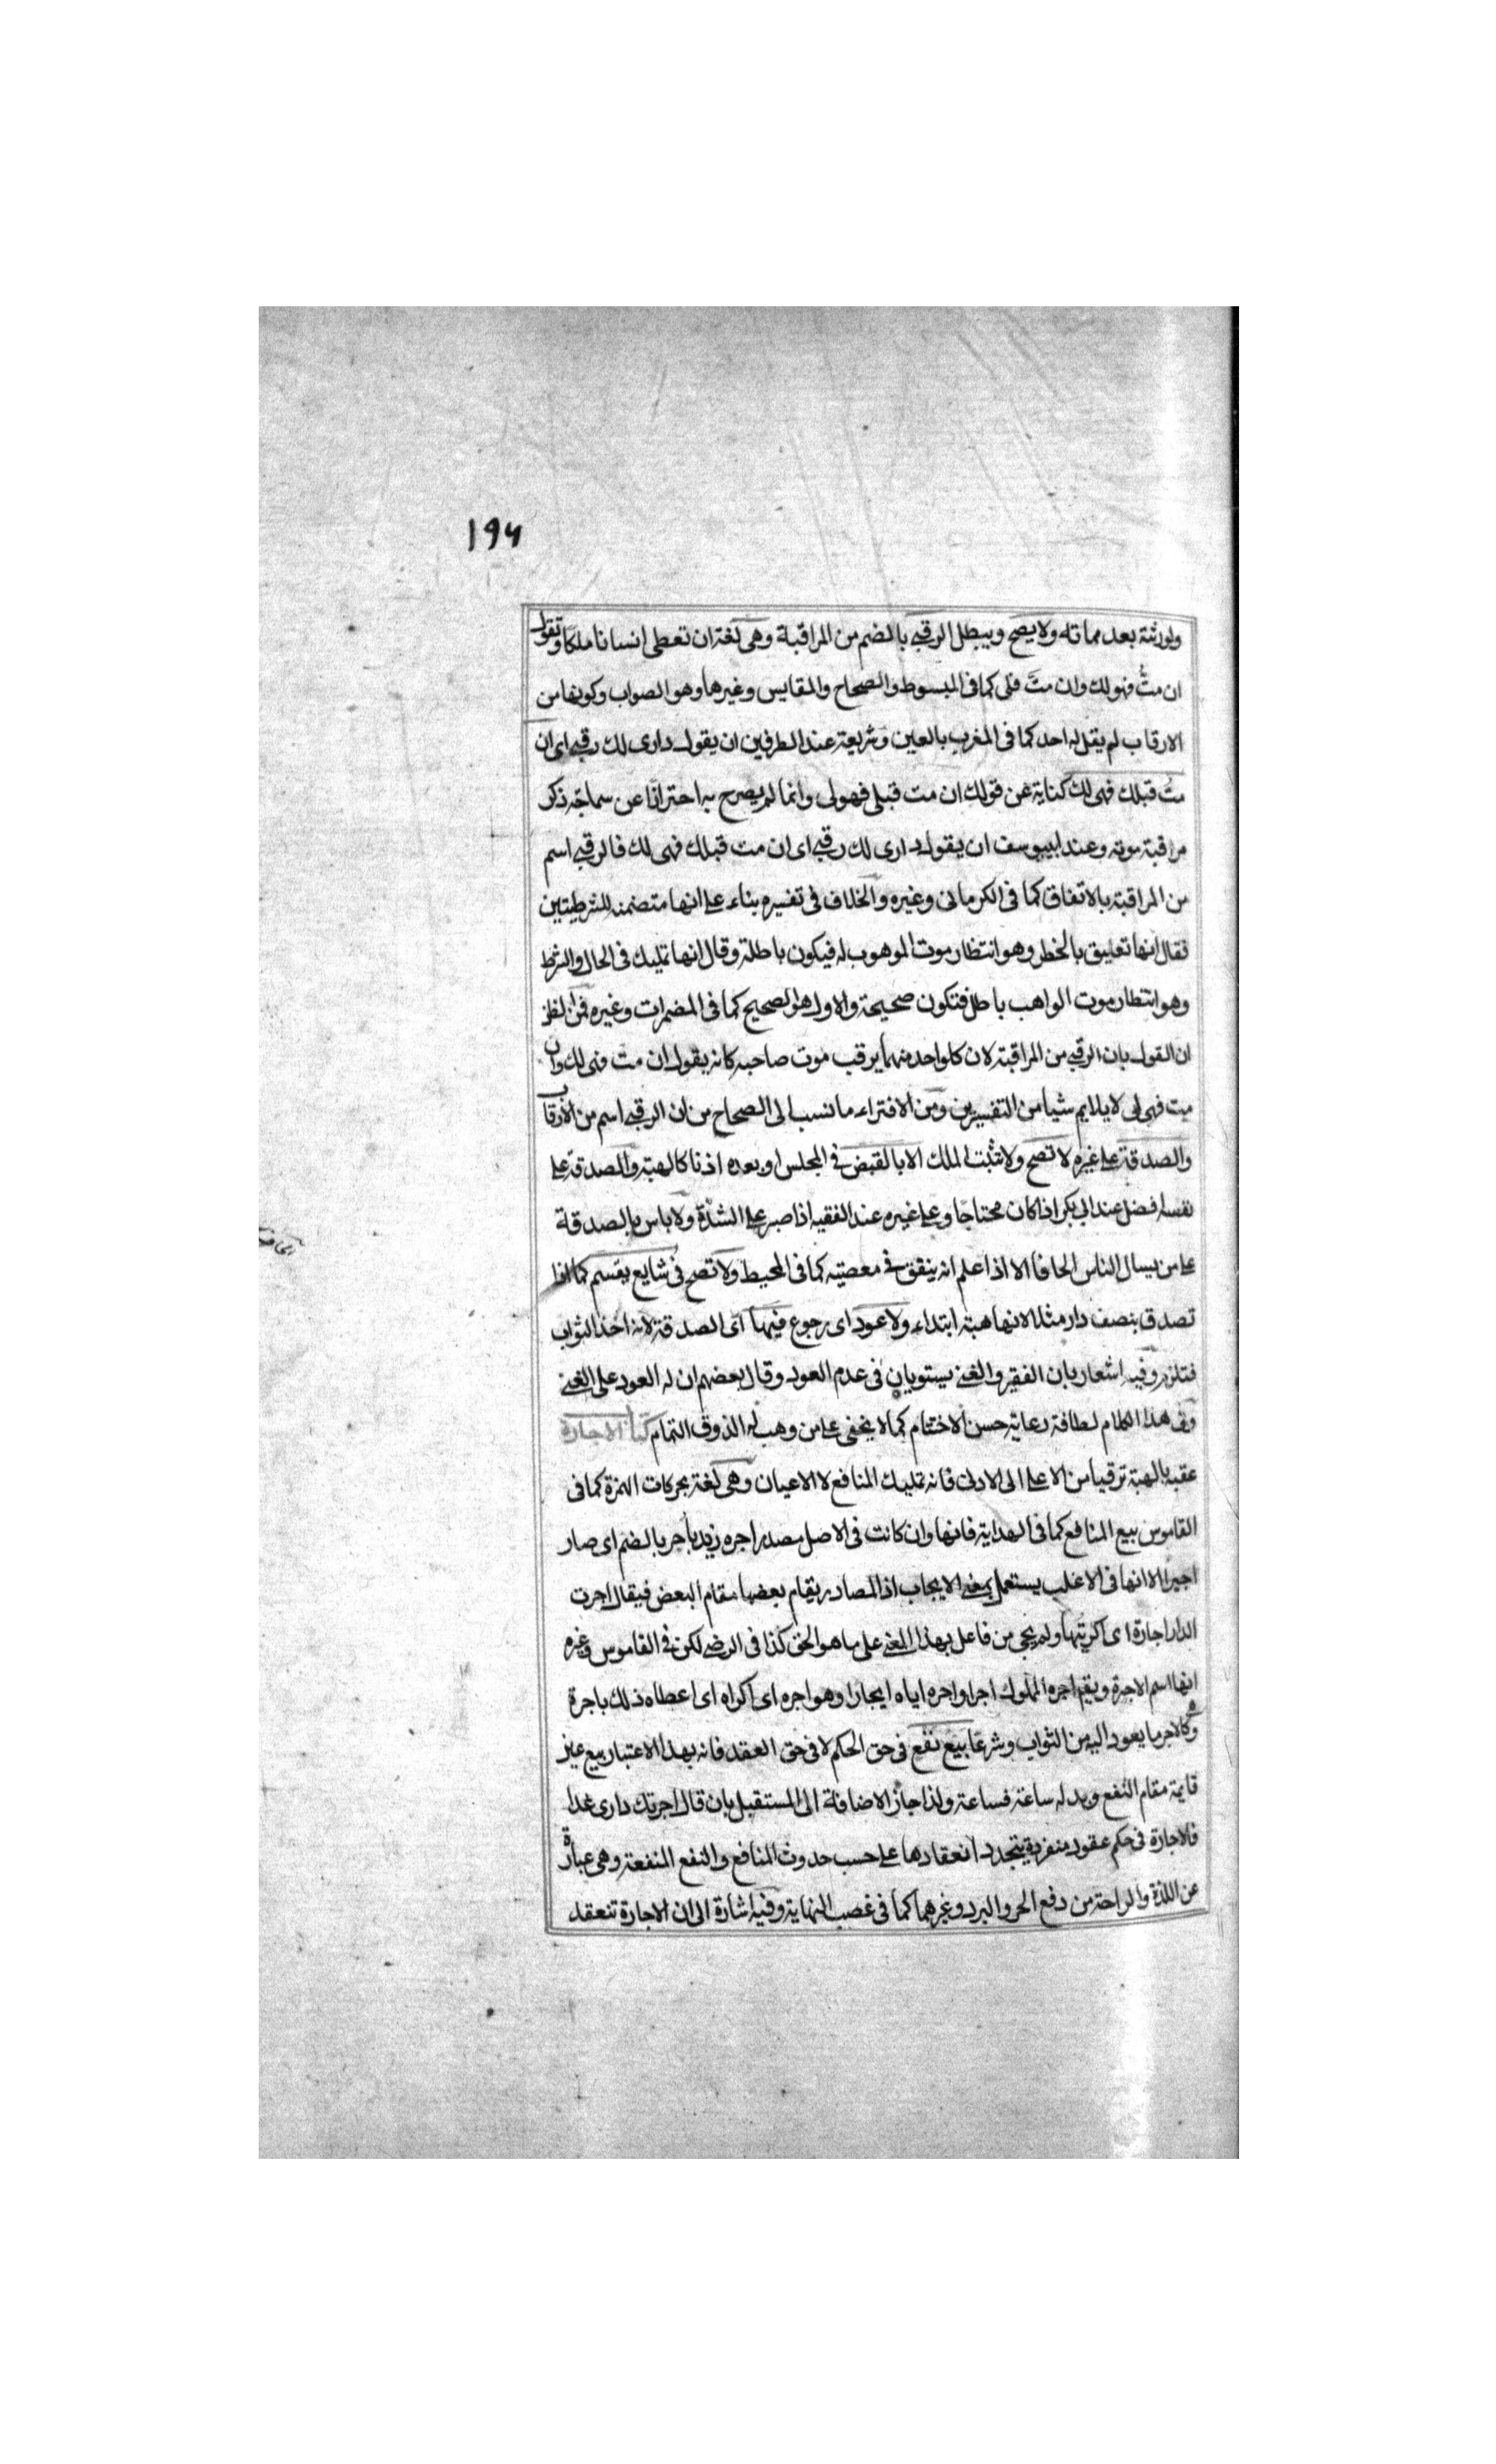 ۱۹۶
ولورثته بعد مماته ولا يصح ويبطل الرقبى بالضم من المراقبة وهى لغة ان تعطى انسانا ملكا وتقول
ان متُّ فهو لك وان متَّ فلى كما فى المبسوط والصحاح والمقايس وغيرها وهو الصواب وكونها من
الارقاب لم يقل به احد كما فى المغرب بالعين وشريعة عند الطرفين ان يقول دارى لك رقبى اى ان
متُّ قبلك فهى لك كناية عن قولك ان مت قبلى فهولى وانما لم يصرح به احترازا عن سماجة ذكر
مراقبة موته وعند ابيوسف ان يقول دارى لك رقبى اى ان مت قبلك فهى لك فالرقبى اسم
من المراقبة بالاتفاق كما فى الكرمانى وغيره والخلاف فى تفسيره بناء على انها متضمنه للشرطيتين
فقال انها تعليق بالخطر وهو انتظار موت الموهوب له فيكون باطلة وقال انها تمليك فى الحال والشرط
وهو انتظار موت الواهب باطل فتكون صحيحة والاول هو الصحيح كما فى المضمرات وغيره فمن الظن
ان القول بان الرقبى من المراقبة لان كلواحد منهما يرقب موت صاحبه كانه يقول ان مت فهى لك وان
مت فهى لى لا يلايم شيا من التفسيرين ومن الافتراء ما نسب الى الصحاح من ان الرقبى اسم من الارقاب
والصدقة على غيره لا تصح ولا تثبت الملك الا بالقبض فى المجلس او بعده اذنا كالهبة والصدقة على
نفسه افضل عند ابى بكر اذا كان محتاجًا وعلى غيره عند الفقيه اذا صبر على الشدّة ولا باس بالصدقة
على من يسال الناس الحافا الا اذا علم انه ينفق فى معصيته كما فى المحيط ولا تصح فى شايع يقسم كما اذا
تصدق بنصف دار مثلا لانها هبة ابتداء ولا عود اى رجوع فيها اى الصدقة لانه اخذ الثواب
فتلزم وفيه اشعار بان الفقير والغنى يستويان فى عدم العود وقال بعضهم ان له العود على الغنى
وفى هذا الكلام لطافة رعاية حسن الاختتام كما لا يخفى على من وهب له الذوق التمام كتاب الاجارة
عقبه بالهبة ترقيا من الاعلى الى الادنى فانه تمليك المنافع لا الاعيان وهى لغة بحركات الهمزة كما فى
القاموس بيع المنافع كما فى الهداية فانها وان كانت فى الاصل مصدر اجره زيد ياجر بالضم اى صار
اجيرا الا انها فى الاغلب يستعمل بمعنى الايجاب اذ المصادر يقام بعضها مقام البعض فيقال اجرت
الدار اجارة اى اكريتها ولم يجى من فاعل بهذا المعنى على ما هو الحق كذا فى الرضى لكن فى القاموس وغيره
انها اسم الاجرة ويقم اجره المملوك اجرا واجره اياه ايجارا وهو اجره اى اكراه اى اعطاه ذلك باجرة
وكالاجر ما يعود اليه من الثواب وشرعًا بيع نفع فى حق الحكم لا فى حق العقد فانه بهذا الاعتبار بيع عين
قايمة مقام النفع وبدله ساعة فساعة ولذا جاز الاضافة الى المستقبل بان قال اجرتك دارى غدا
فالاجارة فى حكم عقود منفردة يتجدد انعقادها على حسب حدوث المنافع والنفع المنفعة وهى عبارة
عن اللذة والراحة من دفع الحر والبرد وغيرهما كما فى غصب النهاية وفيه اشارة الى ان الاجارة تنعقد